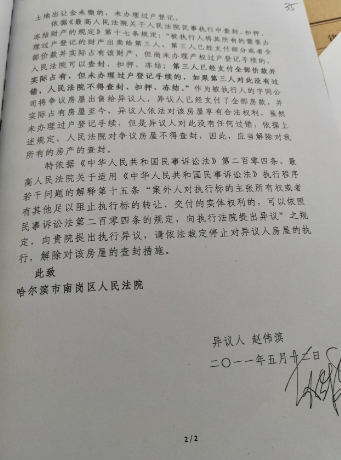 35
土地出让金未缴的，未办理过户登记。
依据《最高人民法院关于人民法院民事执行中查封、扣押、
冻结财产的规定》第十七条规定：“被执行人将其所有的需要办
理过户登记的财产出卖给第三人，第三人已经支付部分或者全
部价款并实际占有该财产，但尚未办理产权过户登记手续的，
人民法院可以查封、扣押、冻结；第三人已经支付全部价款并
实际占有，但未办理过户登记手续的，如果第三人对此没有过
错，人民法院不得查封、扣押、冻结。”作为被执行人的宇同公
司将争议房屋出售给异议人，异议人已经支付了全部房款，并
实际占有房屋至今，异议人依法对该房屋享有合法权利，虽然
未办理过户登记手续，但是异议人对此没有任何过错，依据上
述规定，人民法院对争议房屋不得查封，因此，应当解除对我
所有的房产的查封。
特依据《中华人民共和国民事诉讼法》第二百零四条、最
高人民法院关于适用《中华人民共和国民事诉讼法》执行程序
若干问题的解释第十五条“案外人对执行的主张所有权或者
有其他足以阻止执行标的转让、交付的实体权利的，可以依照
民事诉讼法第二百零四条的规定，向执行法院提出异议”之规
定，向贵院提出执行异议，请依法裁定停止对异议人房屋的执
行，解除对该房屋的查封措施。
此致
哈尔滨市南岗区人民法院
异议人 赵伟滨
二〇一一年五月 日
2/2